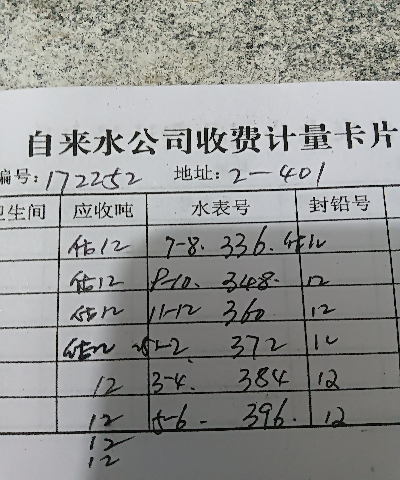 自来水公司收费计量卡片
编号:172252 地址:2-401
卫生间 应收吨 水表号 封铅号
估12 7-8. 336. 估12
估12 9-10. 348. 12
估12 11-12 360 12
估12 1-2. 372 12
12 3-4. 384 12
12 5-6. 396. 12
12
12